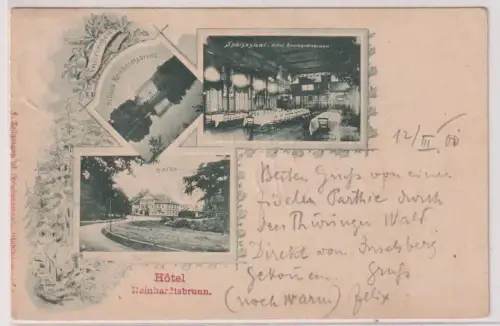 Speisesaal - Hôtel Reinhardsbrunn
Schloss Reinhardsbrunn
Hôtel
Hôtel
Reinhardtsbrunn.
12/III 00
Besten Gruß von einer
fidelen Parthie durch
den Thüringer Wald
Direkt vom Inselsberg
gekommen. Gruß
(noch warm) Felix